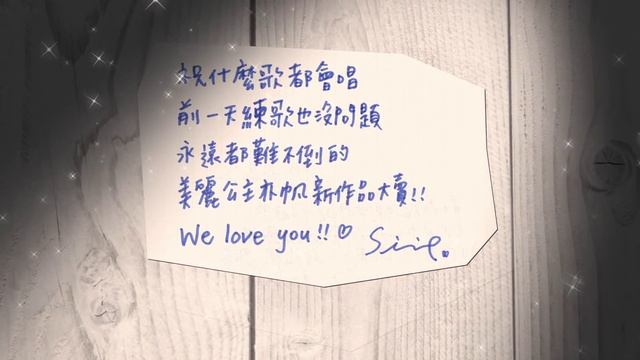 祝什麼歌都會唱
前一天練歌也沒問題
永遠都難不倒的
美麗公主亦帆新作品大賣!!
We love you!!♡